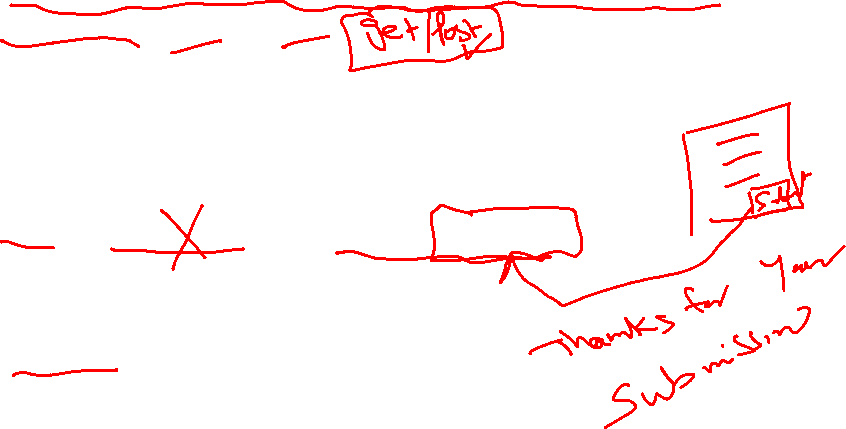 get | Post
Thanks for your
Submission